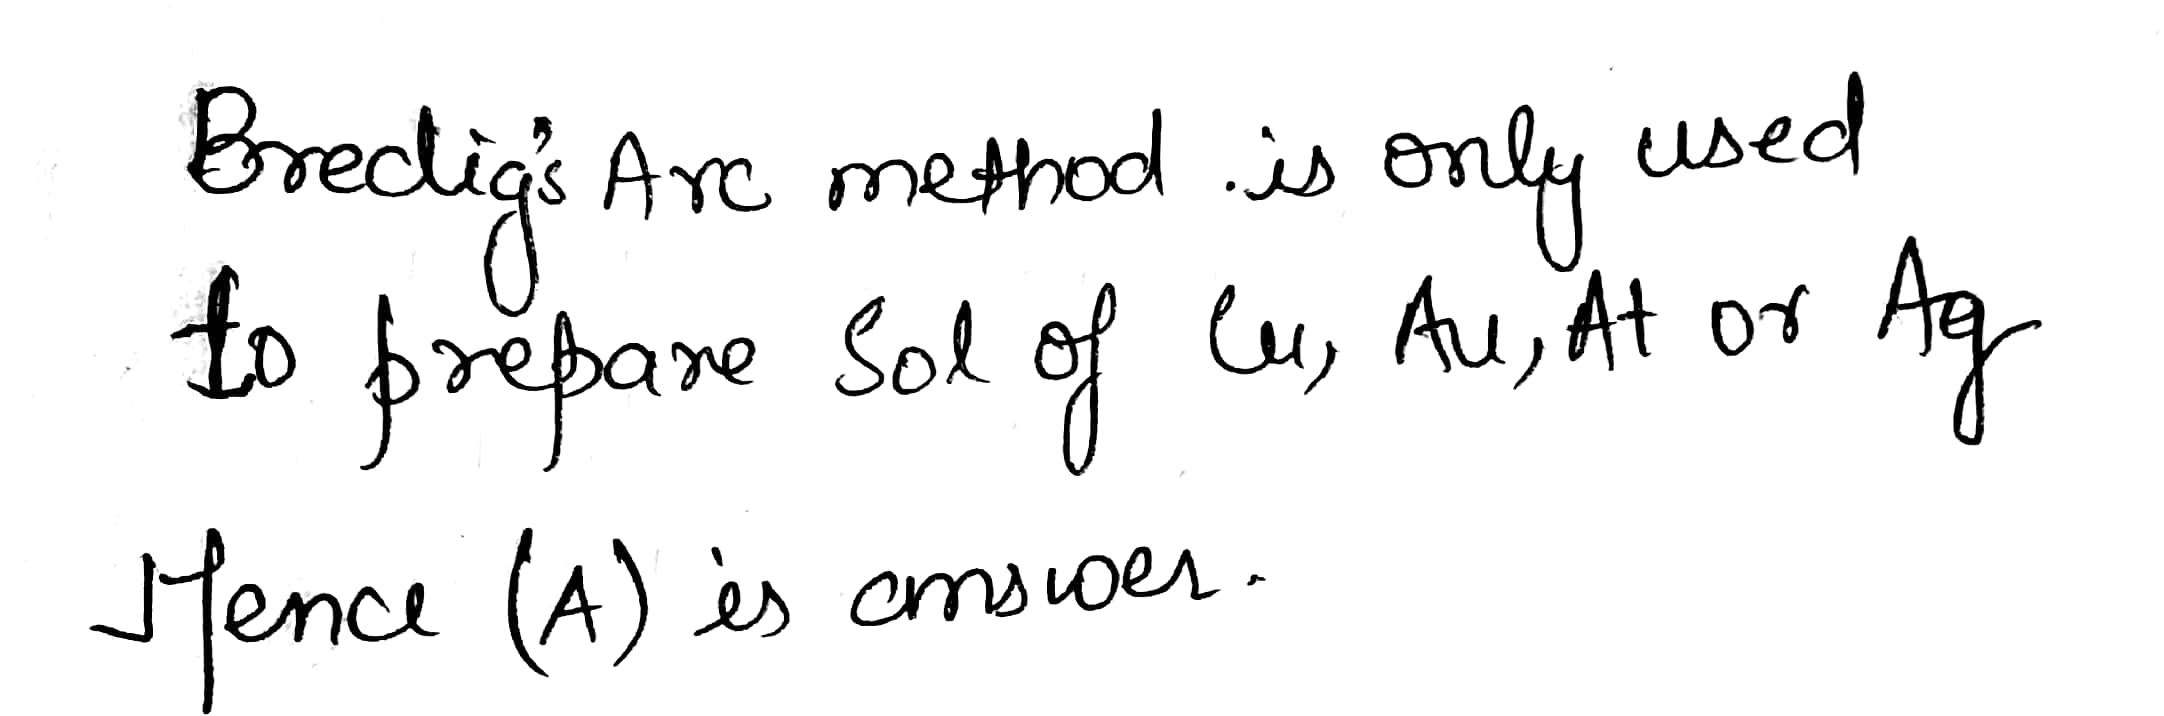 Bredig's Arc method is only used
to prepare Sol of Cu, Au, At or Ag
Hence (A) is answer.